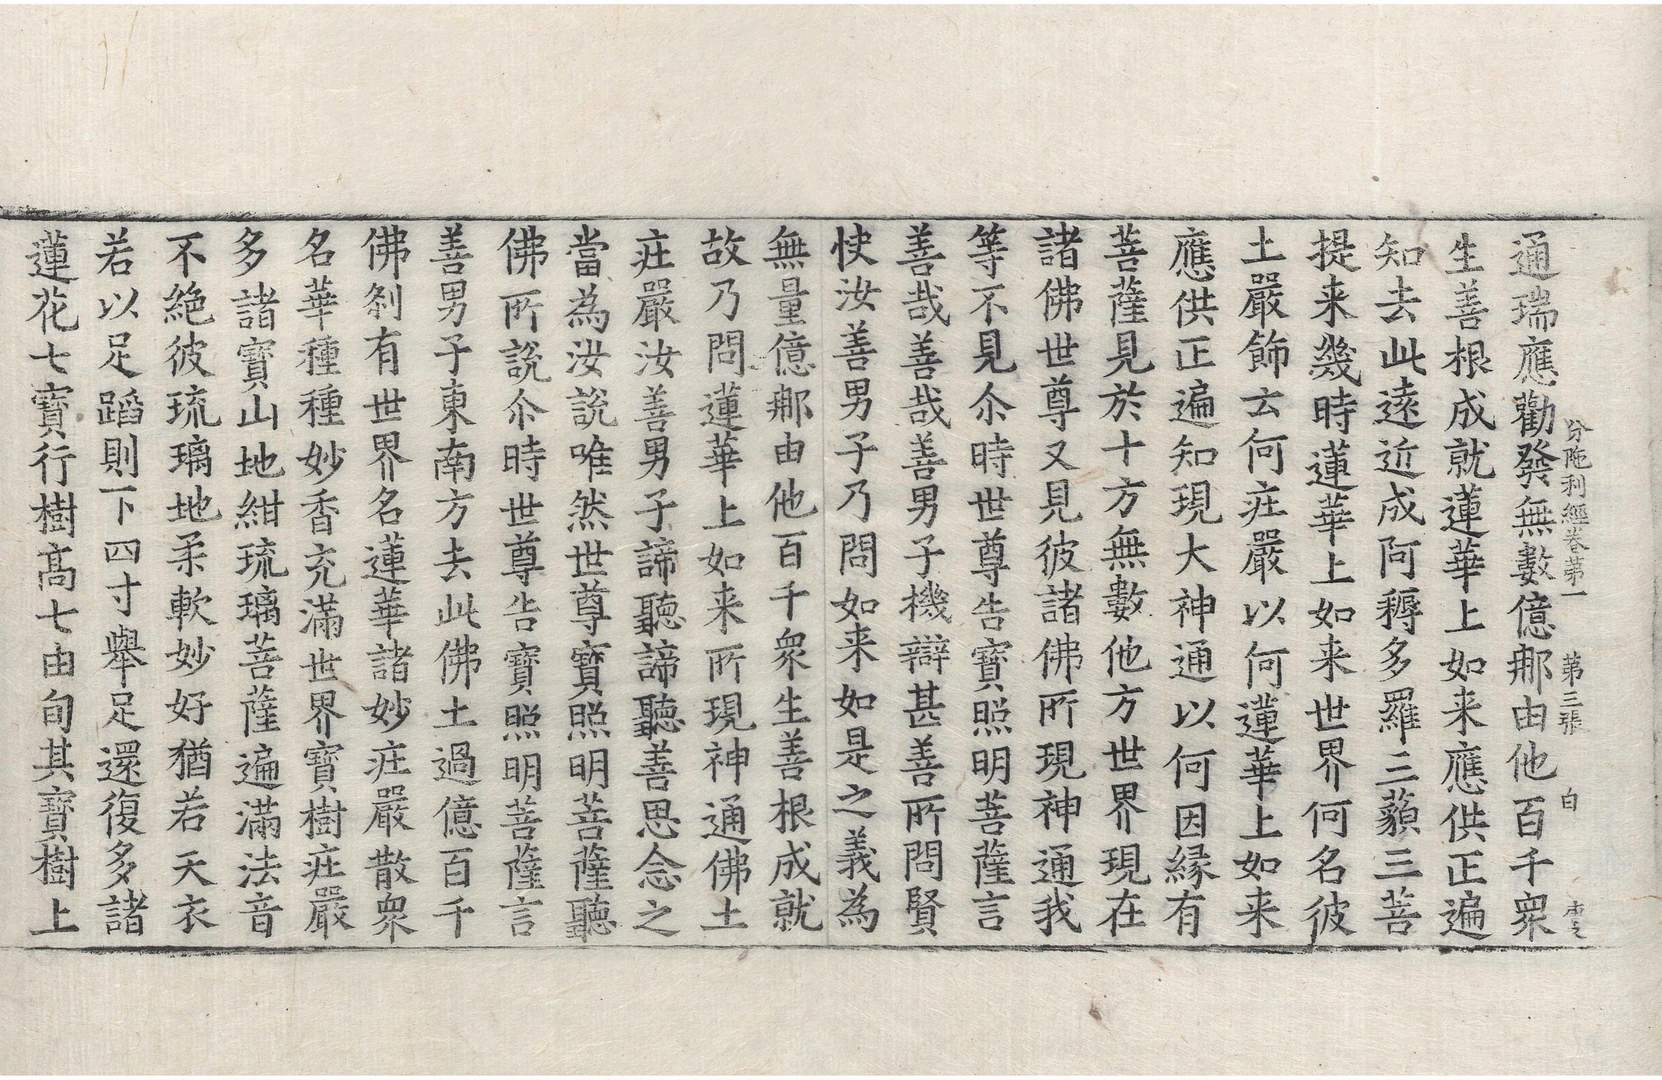 分陁利經卷第一　第三張　白
通瑞應勸發無數億那由他百千衆
生善根成就蓮華上如来應供正遍
知去此遠近成阿耨多羅三藐三菩
提来幾時蓮華上如来世界何名彼
土嚴飾云何庄嚴以何蓮華上如来
應供正遍知現大神通以何因縁有
菩薩見於十方無數他方世界現在
諸佛世尊又見彼諸佛所現神通我
等不見尒時世尊告寶照明菩薩言
善哉善哉善男子機辯甚善所問賢
快汝善男子乃問如来如是之義為
無量億那由他百千衆生善根成就
故乃問蓮華上如来所現神通佛土
庄嚴汝善男子諦聽諦聽善思念之
當為汝說唯然世尊寶照明菩薩聽
佛所說尒時世尊告寶照明菩薩言
善男子東南方去此佛土過億百千
佛刹有世界名蓮華諸妙庄嚴散衆
名華種種妙香充滿世界寶樹庄嚴
多諸寶山地紺琉璃菩薩遍滿法音
不絶彼琉璃地柔軟妙好猶若天衣
若以足蹈則下四寸舉足還復多諸
蓮花七寶行樹高七由旬其寶樹上